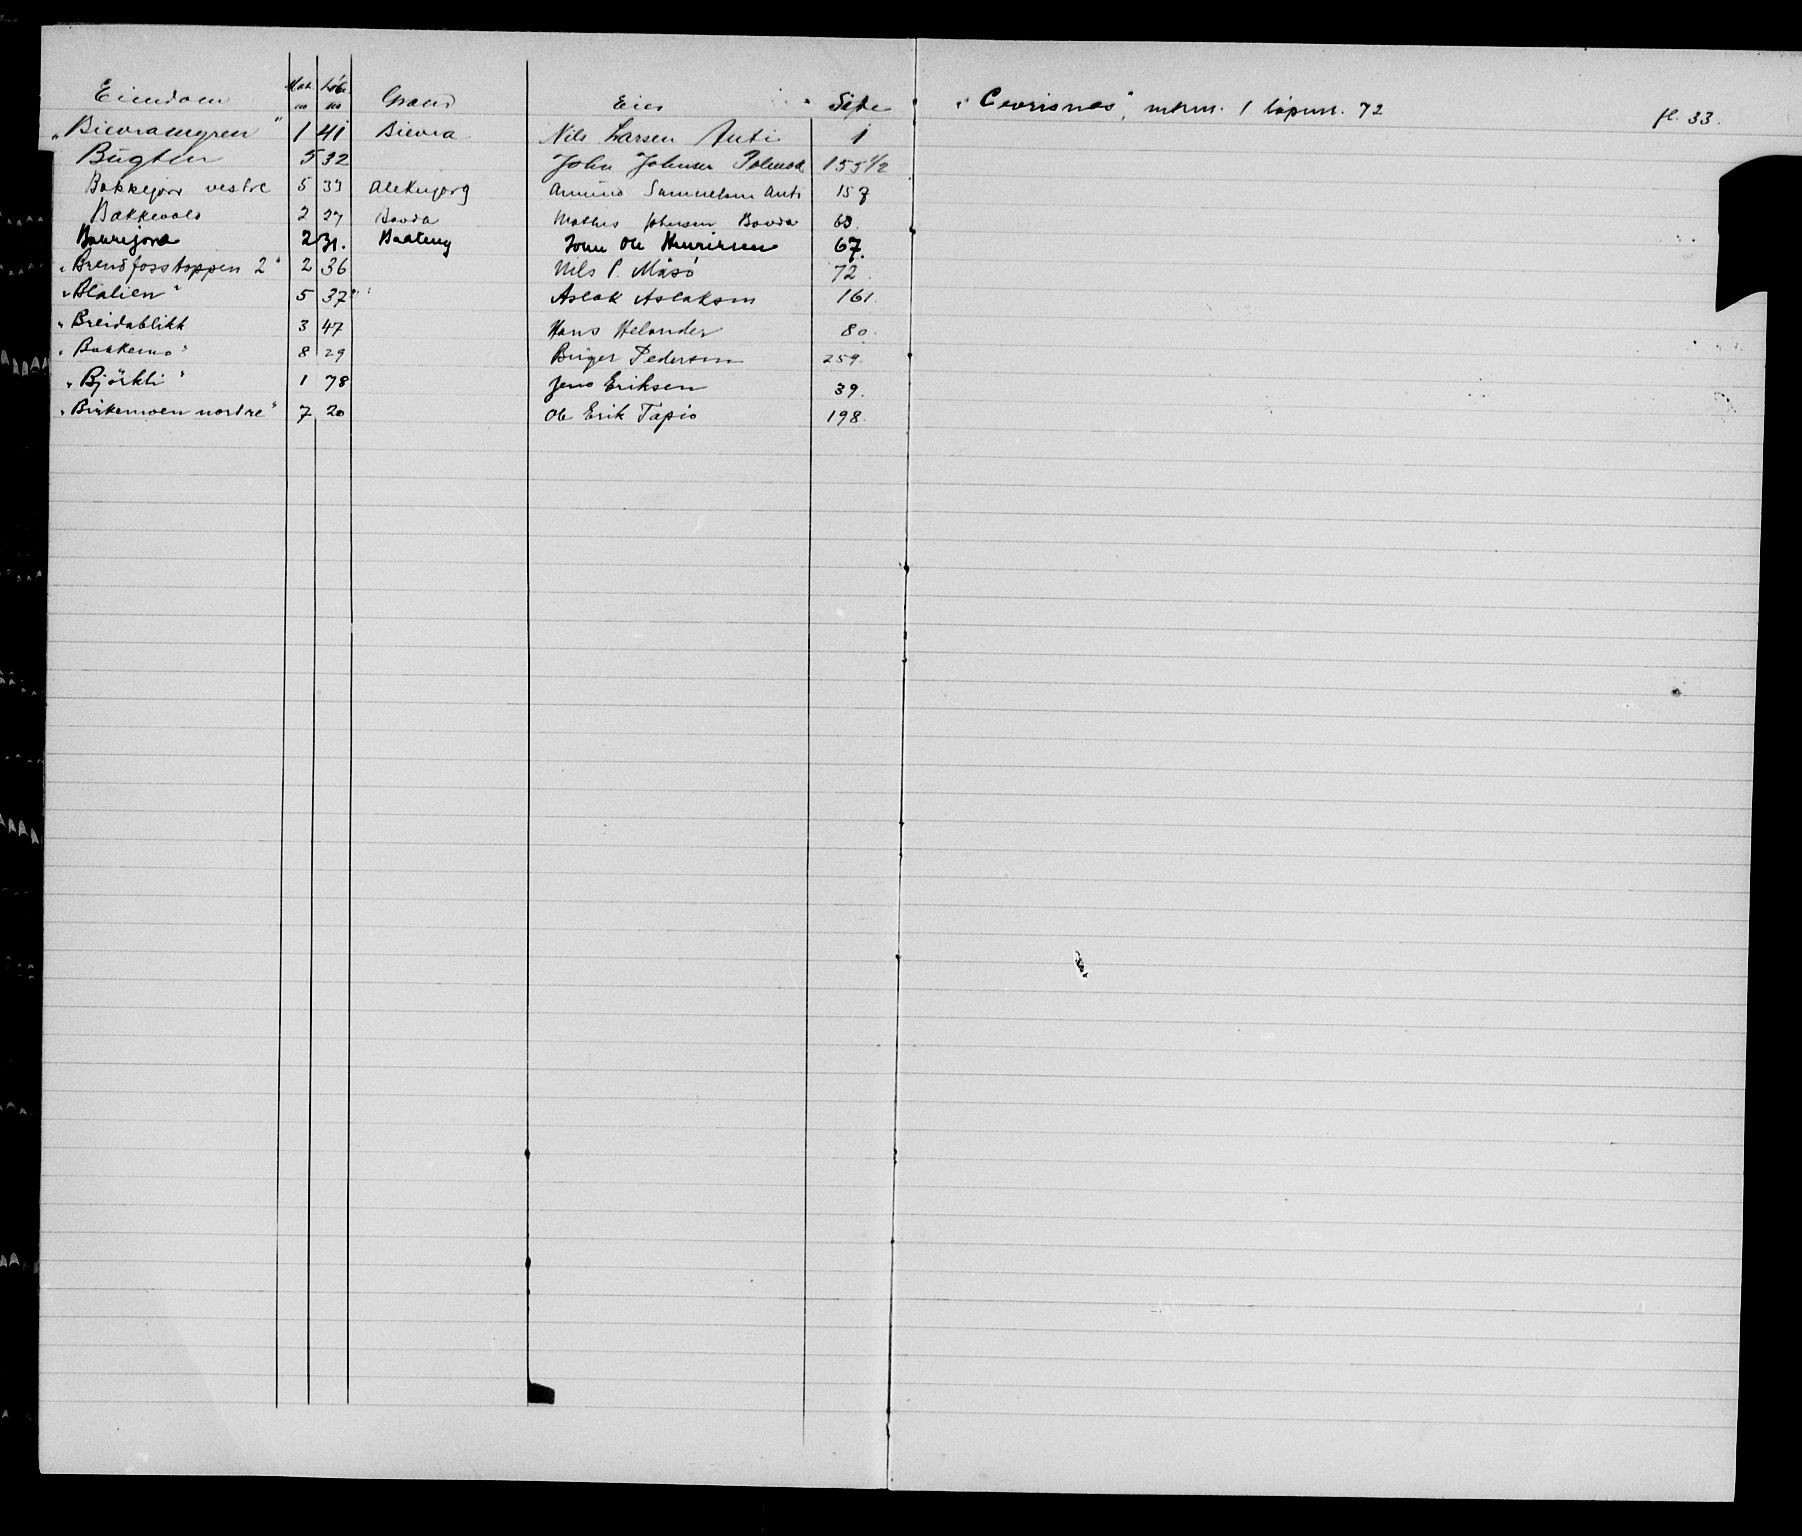 Eiendom Mat. no Löb. no Grand Eier Side
"Bievramgren" 1 41 Bievra Nils Larsen Anti 1
Bugten 5 32 John Johnsen Polmak 155 1/2
Bakkejorr vestre 5 33 Aleknjarg Amund Samuelsen Anti 157
Bakkevold 2 27 Bovda Mathis Johnsen Bovda 63.
2 31. John Ole Henriksen 67.
"Brendfosstoppen 2" 2 36 Nils P. Måsö 72.
"Blalien" 5 37 Aslak Aslaksen 161.
"Breidablikk 3 47 Hans Helander 80.
"Bakkemo" 8 29 Birger Pedersen 259.
"Björkli" 1 78 Jens Eriksen 39.
"Birkemoen nordre" 7 20 Ole Erik Tapio 198.
"Cevrisnes", mtrnr. 1 löpenr. 72 fl. 33.